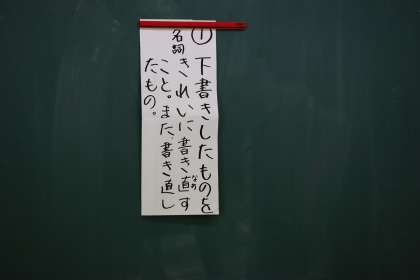 ① 下書きしたものを
名詞 きれいに書き直す
こと。また、書き直し
たもの。